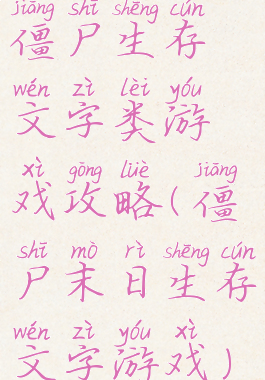 jiāng shī shēng cún
僵尸生存
wén zì lèi yóu
文字类游
xì gōng lüè jiāng
戏攻略(僵
shī mò rì shēng cún
尸末日生存
wén zì yóu xì
文字游戏)